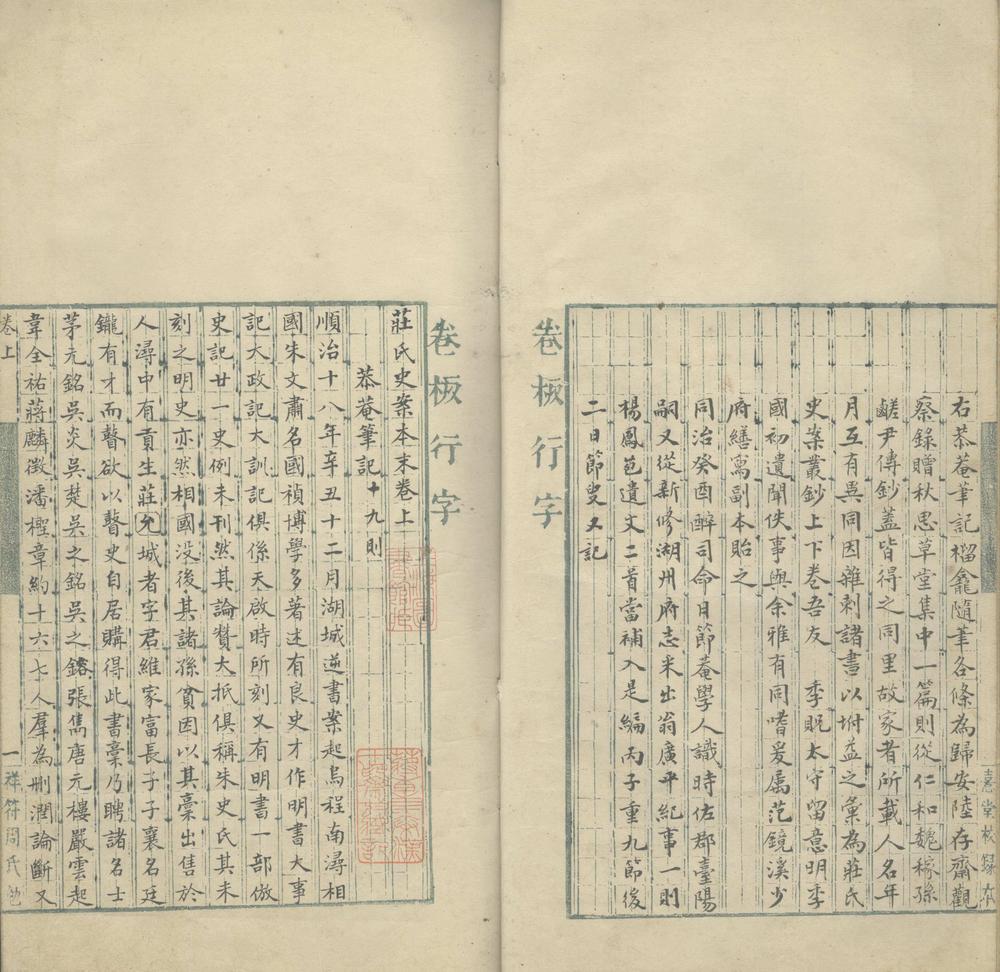 右恭菴筆記榴龕隨筆各條為歸安陸存齋觀
察錄贈秋思草堂集中一篇則從仁和魏稼孫
鹺尹傳鈔蓋皆得之同里故家者所載人名年
月互有異同因雜刺諸書以坿益之彙為莊氏
史案叢鈔上下卷吾友 季貺太守留意明季
國初遺聞佚事與余雅有同嗜爰属范鏡溪少
府繕寫副本貽之
同治癸酉醉司命日節菴學人識時佐郡臺陽
嗣又從新修湖州府志采出翁廣平紀事一則
楊鳳苞遺文二首當補入是編丙子重九節後
二日節叟又記
卷板行字
卷板行字
莊氏史案本末卷上
恭菴筆記十九則
順治十八年辛丑十二月湖城逆書案起烏程南潯相
國朱文肅名國禎博學多著述有良史才作明書大事
記大政記大訓記俱係天啟時所刻又有明書一部倣
史記廿一史例未刊然其論贊大抵俱稱朱史氏其未
刻之明史亦然相國没後其諸孫貧因以其稾出售於
人潯中有貢生莊允城者字君維家富長子子襄名廷
鑨有才而瞽欲以瞽史自居購得此書稾乃聘諸名士
茅元銘吳炎吳楚吳之銘吳之鎔張雋唐元樓嚴雲起
韋全祐蔣麟徵潘檉章約十六七人羣為刪潤論斷又
卷上
一
祥符周氏